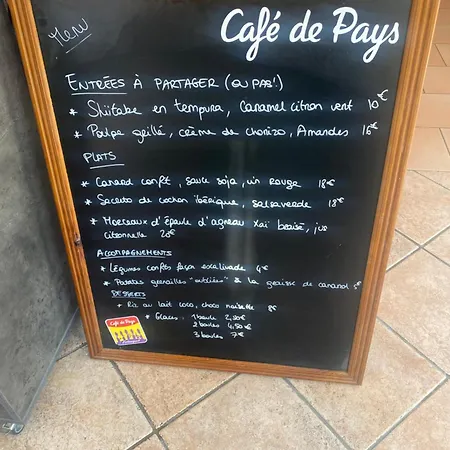 Menu
Café de Pays
ENTRÉES À PARTAGER (OU PAS!)
* Shiitake en tempura, Caramel citron vert 10€
* Poulpe grillé, crème de chorizo, Amandes 16€
PLATS
* Canard confit, sauce soja, vin rouge 18€
* Secreto de cochon ibérique, salsa verde 18€
* Morceaux d'épaule d'agneau Xaï braisé, jus
citronnelle 20€
ACCOMPAGNEMENTS
* Légumes confits façon escalivade 4€
* Patates grenailles "oubliées" à la graisse de canard
DESSERTS
* Riz au lait coco, choco noisette 8€
* Glaces: 1 boule 2,50€
2 boules 4,50€
3 boules 7€
Café de Pays